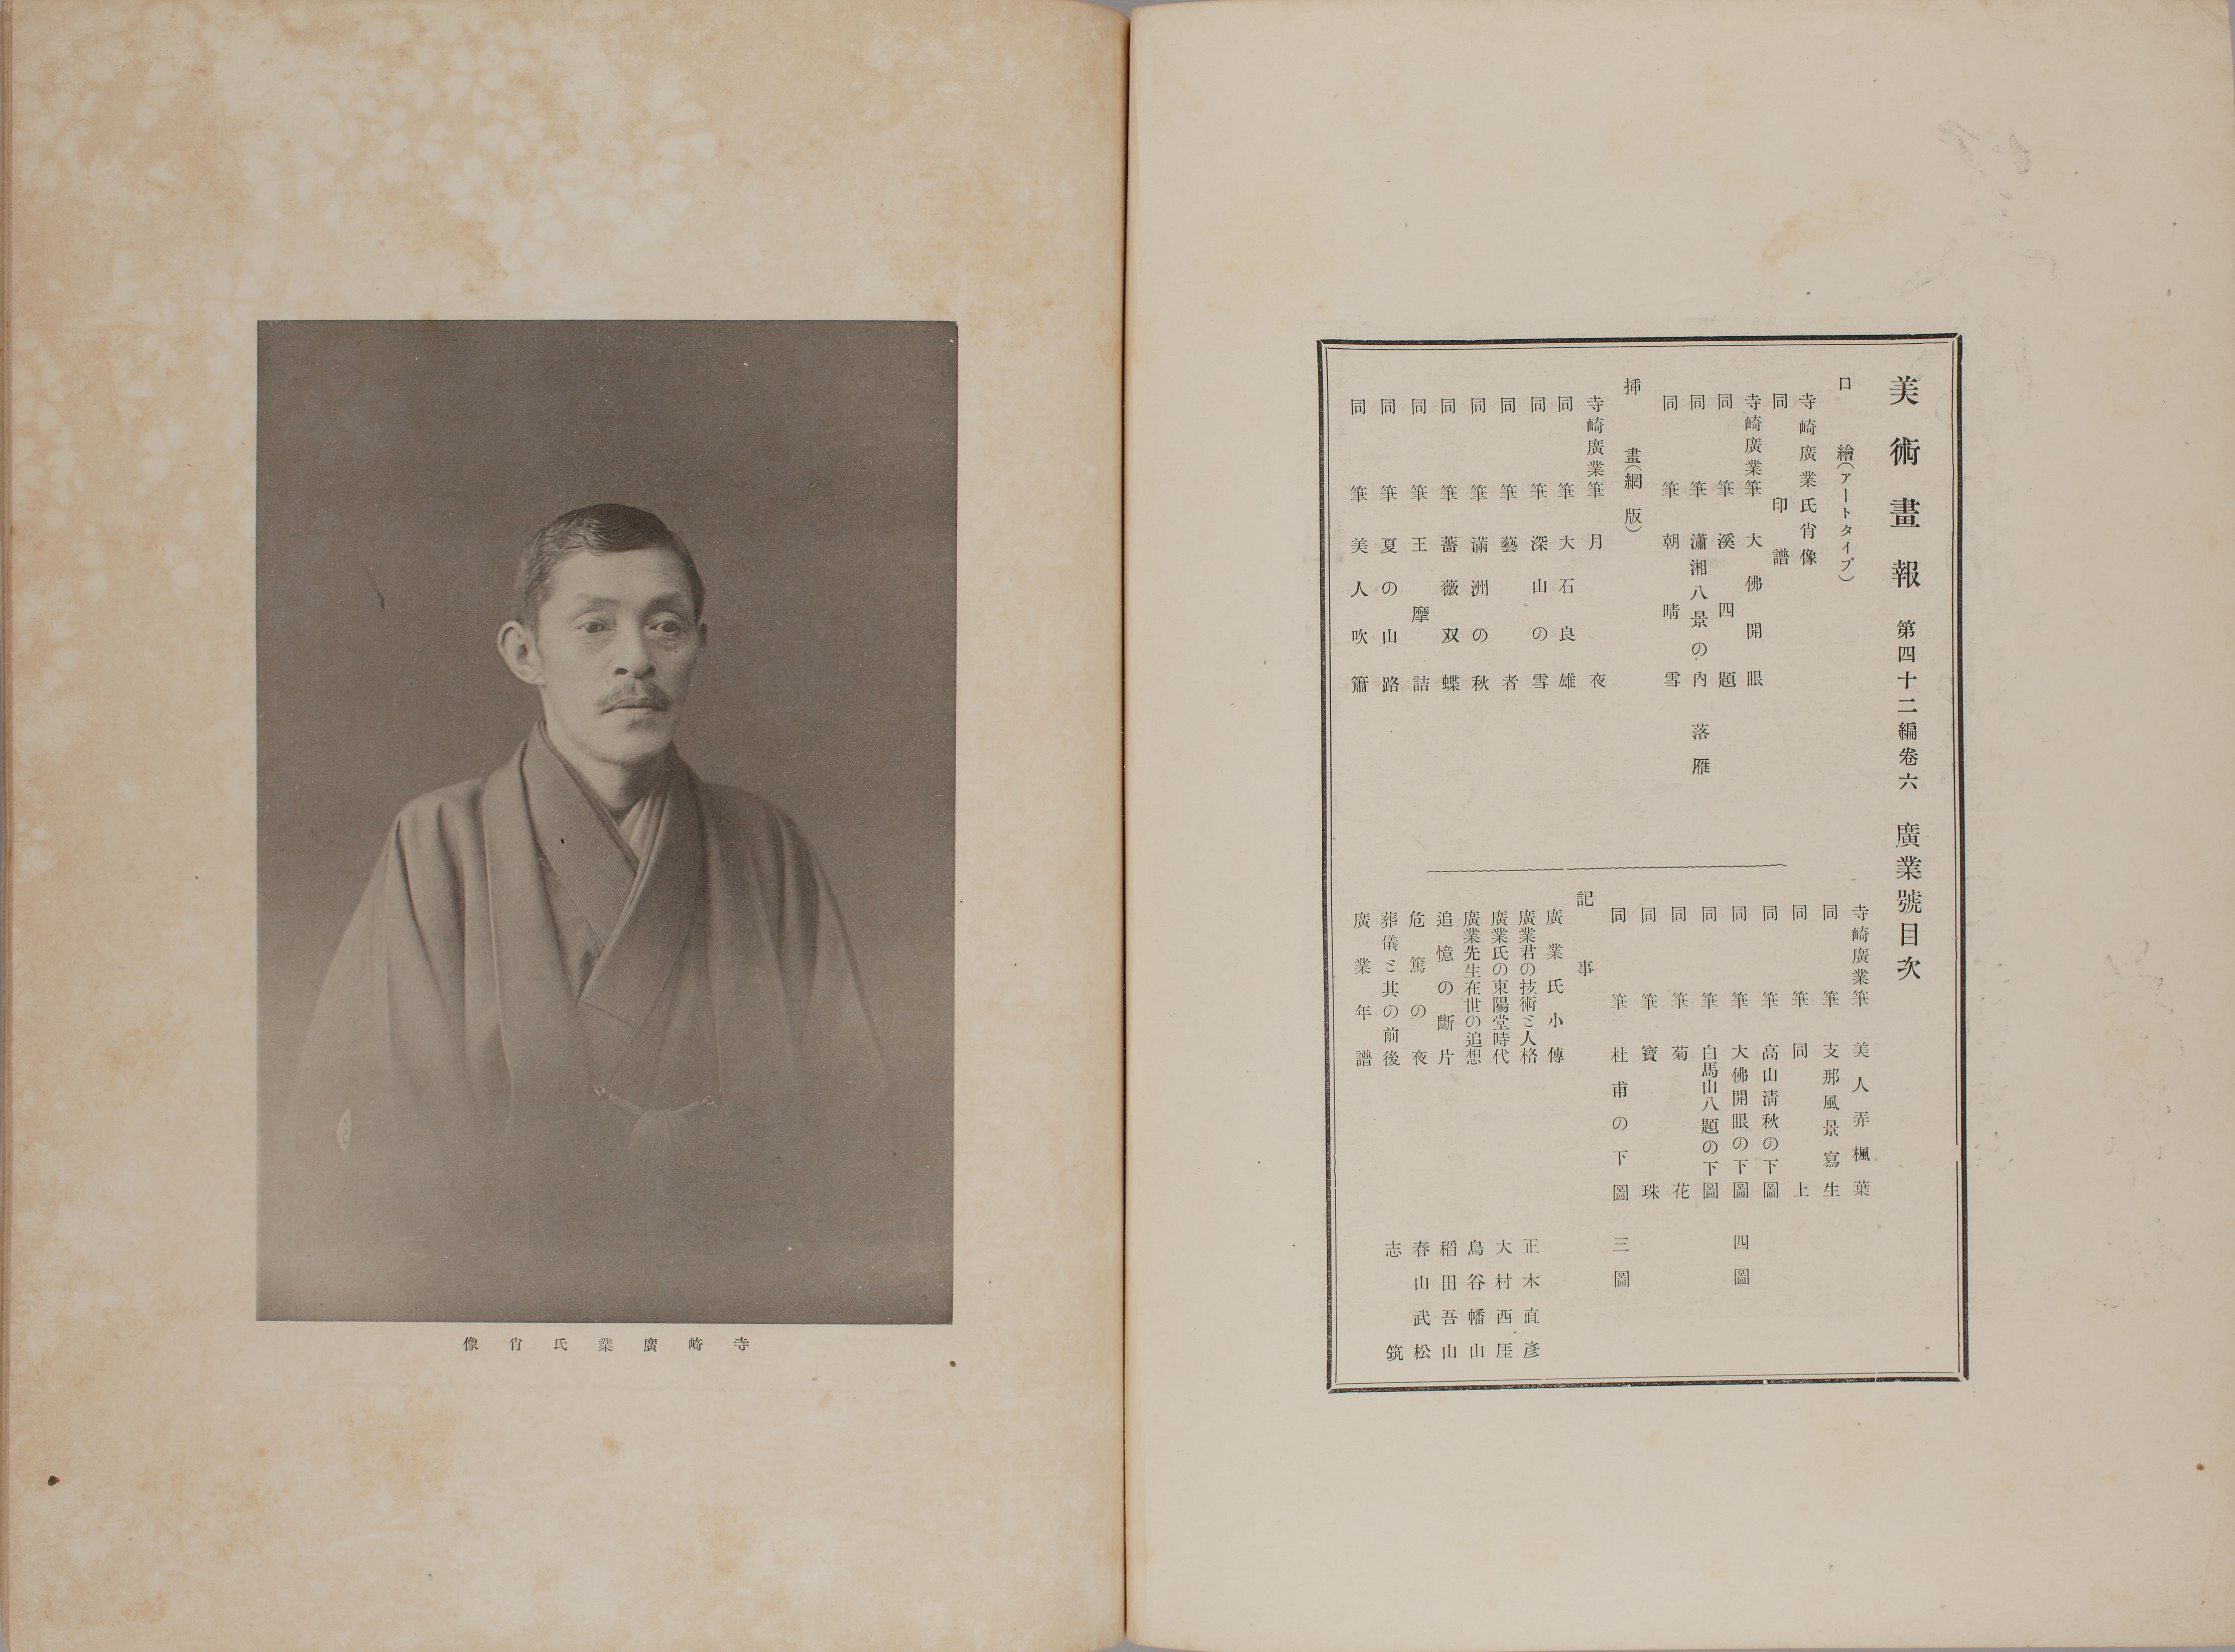 美術畫報 第四十二編卷六 廣業號目次
口繪(アートタイプ)
寺崎廣業氏肖像
同 印譜
寺崎廣業筆 大佛開眼
同 筆 溪四題
同 筆 瀟湘八景の內 落雁
同 筆 朝晴雪
挿畫(網版)
寺崎廣業筆 月夜
同 筆 大石良雄
同 筆 深山の雪
同 筆 藝者
同 筆 滿洲の秋
同 筆 薔薇双蝶
同 筆 王摩詰
同 筆 夏の山路
同 筆 美人吹簫
寺崎廣業筆 美人弄楓葉
同 筆 支那風景寫生
同 筆 同上
同 筆 高山淸秋の下圖
同 筆 大佛開眼の下圖 四圖
同 筆 白馬山八題の下圖
同 筆 菊花
同 筆 寶珠
同 筆 杜甫の下圖 三圖
記事
廣業氏小傳
廣業君の技術と人格 正木直彥
廣業氏の東陽堂時代 大村西厓
廣業先生在世の追想 鳥谷幡山
追憶の斷片 稻田吾山
危篤の夜 春山武松
葬儀と其の前後 志筑
廣業年譜
寺崎廣業氏肖像